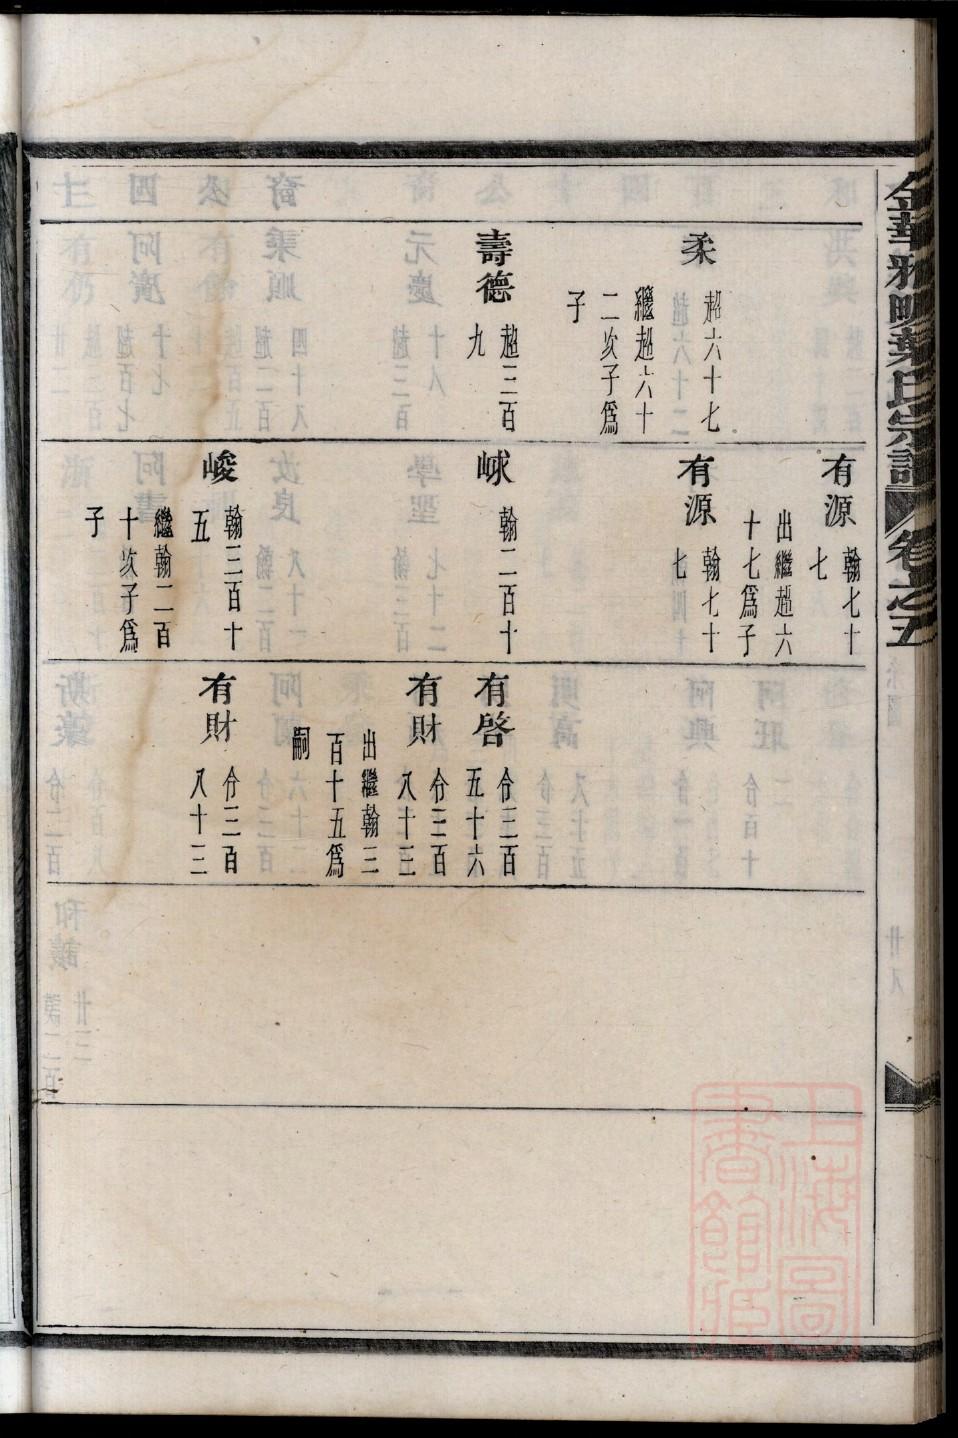 金華雅畈葉氏宗譜 卷之五
柔
超六十七
繼超六十
二次子爲
子
壽德
超三百
九
有源
翰七十
七
出繼超六
十七爲子
有源
翰七十
七
㟈
翰二百十
峻
翰三百十
五
繼翰二百
十次子爲
子
有啓
分三百
五十六
有財
分三百
八十三
出繼翰三
百十五爲
嗣
有財
分三百
八十三
上海圖
書館藏